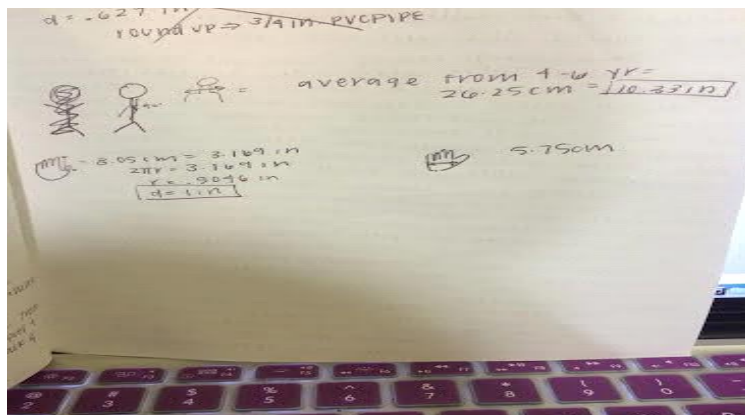 d = .627 in
round up => 3/4 in PVC PIPE
= average from 4-6 yr =
26.25cm = 10.33in
= 8.05cm = 3.169 in
2πr = 3.169 in
r = .5046 in
d = 1 in
5.75cm